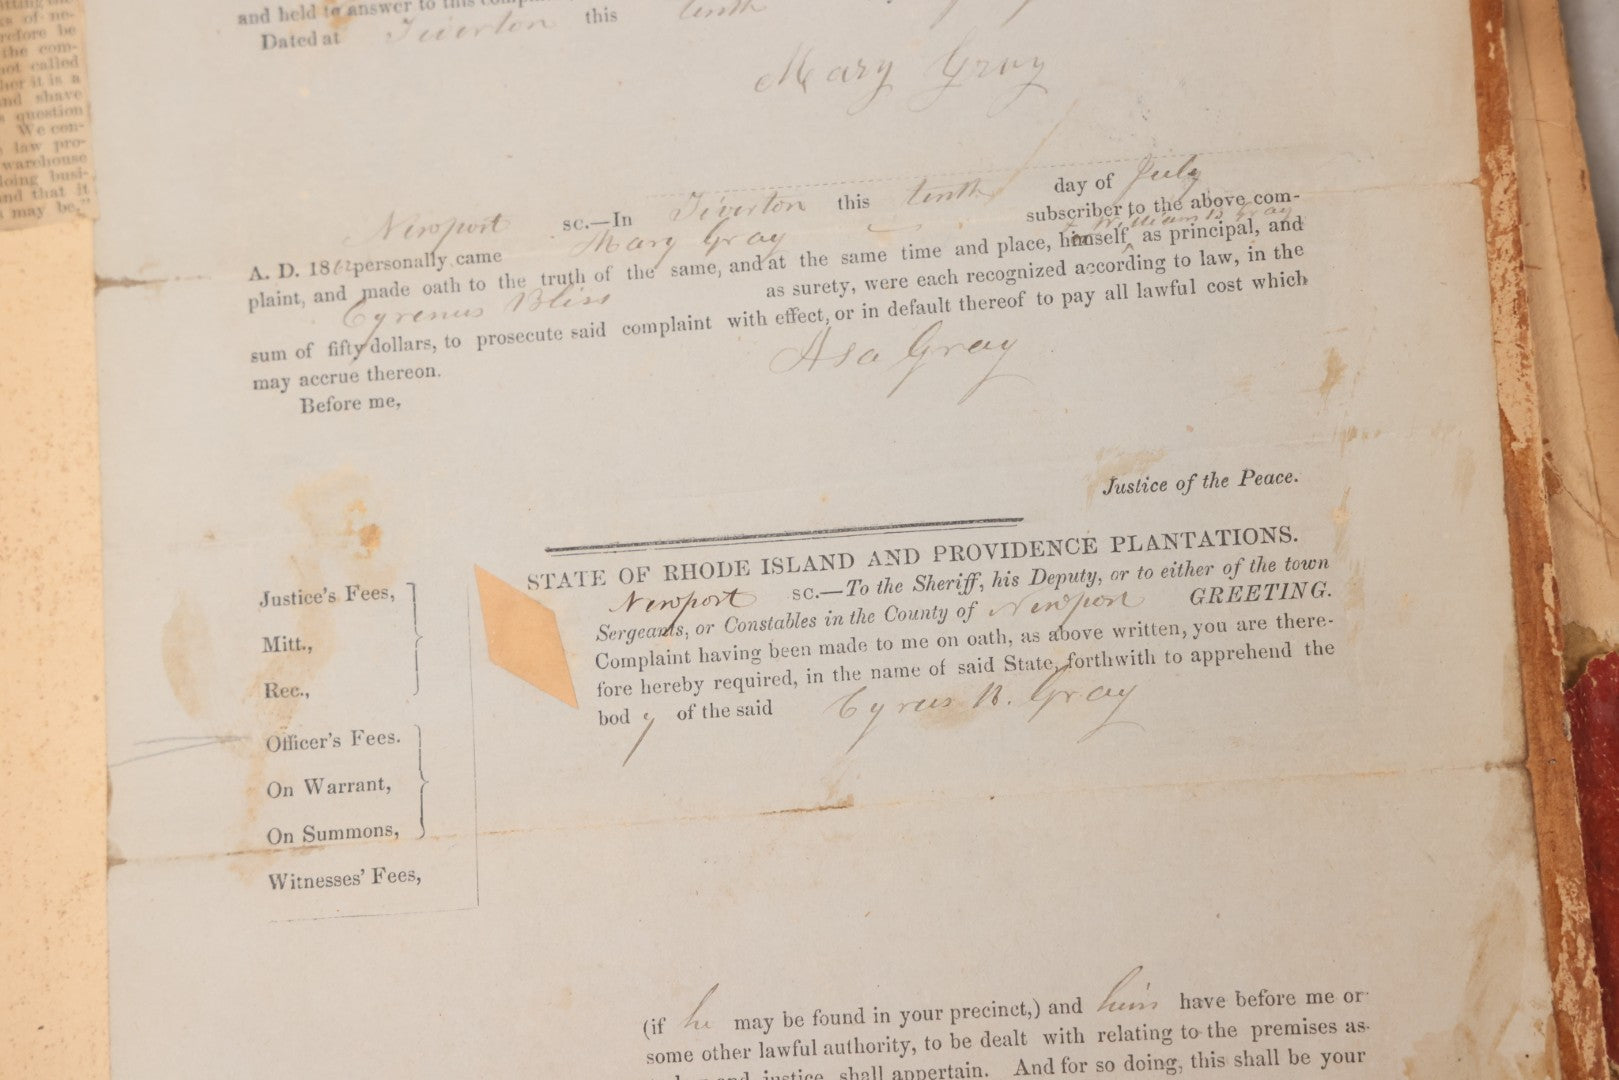 and held to answer to this
Dated at Tiverton this tenth
Mary Gray
Newport sc.—In Tiverton this tenth day of July
A. D. 1862 personally came Mary Gray subscriber to the above com-
plaint, and made oath to the truth of the same, and at the same time and place, himself & William B Gray as principal, and
Cyrenus Bliss as surety, were each recognized according to law, in the
sum of fifty dollars, to prosecute said complaint with effect, or in default thereof to pay all lawful cost which
may accrue thereon.
Before me, Asa Gray
Justice of the Peace.
STATE OF RHODE ISLAND AND PROVIDENCE PLANTATIONS.
Newport sc.—To the Sheriff, his Deputy, or to either of the town
Sergeants, or Constables in the County of Newport GREETING.
Complaint having been made to me on oath, as above written, you are there-
fore hereby required, in the name of said State, forthwith to apprehend the
body of the said Cyrus B. Gray
Justice's Fees,
Mitt.,
Rec.,
Officer's Fees.
On Warrant,
On Summons,
Witnesses' Fees,
(if he may be found in your precinct,) and him have before me or
some other lawful authority, to be dealt with relating to the premises as
and justice shall appertain. And for so doing, this shall be your
of ne-
refore be
the com-
not called
her it is a
and shave
question
We con-
law pro-
warehouse
doing busi-
and that it
may be."